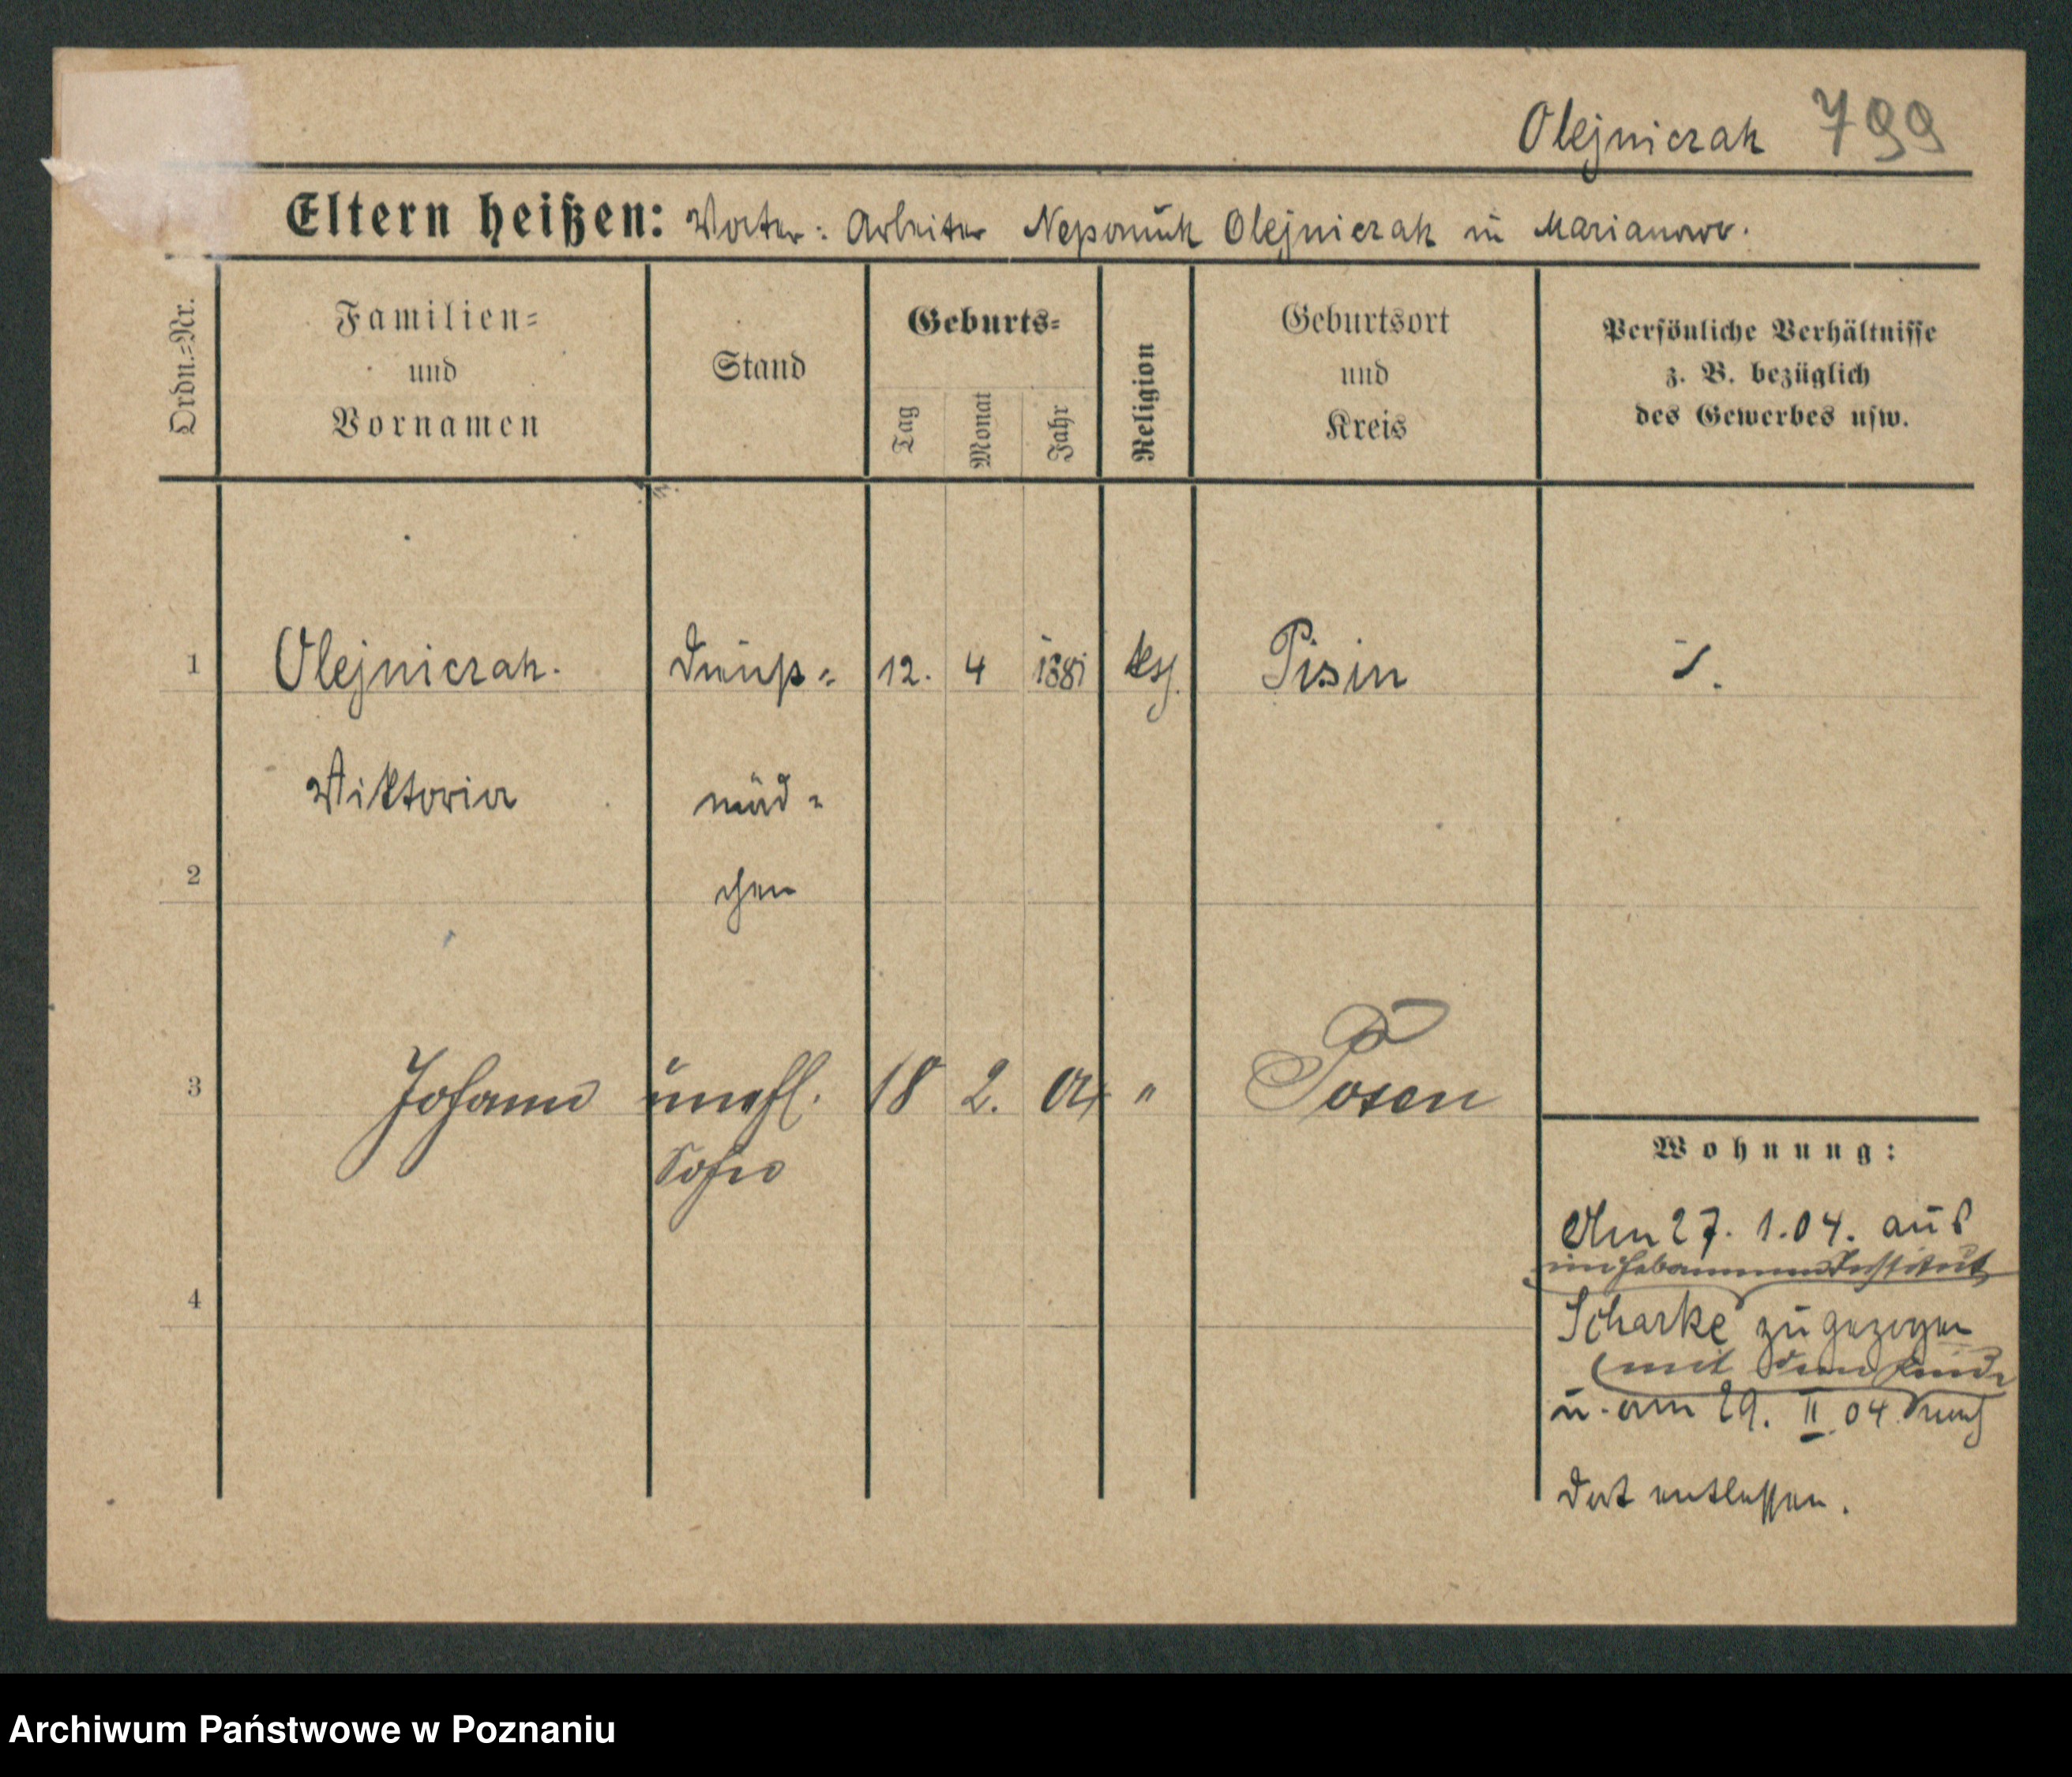 Olejniczak 799
Eltern heißen: Vater: Arbeiter Nepomuk Olejniczak in Marianowo.
Ordn.=Nr.
Familien=
und
Vornamen
Stand
Geburts=
Tag
Monat
Jahr
Religion
Geburtsort
und
Kreis
Persönliche Verhältnisse
z. B. bezüglich
des Gewerbes usw.
1 Olejniczak. Dienst= 12. 4 1881 ksh. Pisin
Viktoria mäd=
2 chen
3 Johann unehl. 18 2. 04 " Posen
Sohn
4
Wohnung:
Am 27. 1.04. aus
im Hebammen Institut
Scharke zugezogen
(mit dem Kinde
u. am 29. II 04 nach
dort entlassen.
Archiwum Państwowe w Poznaniu